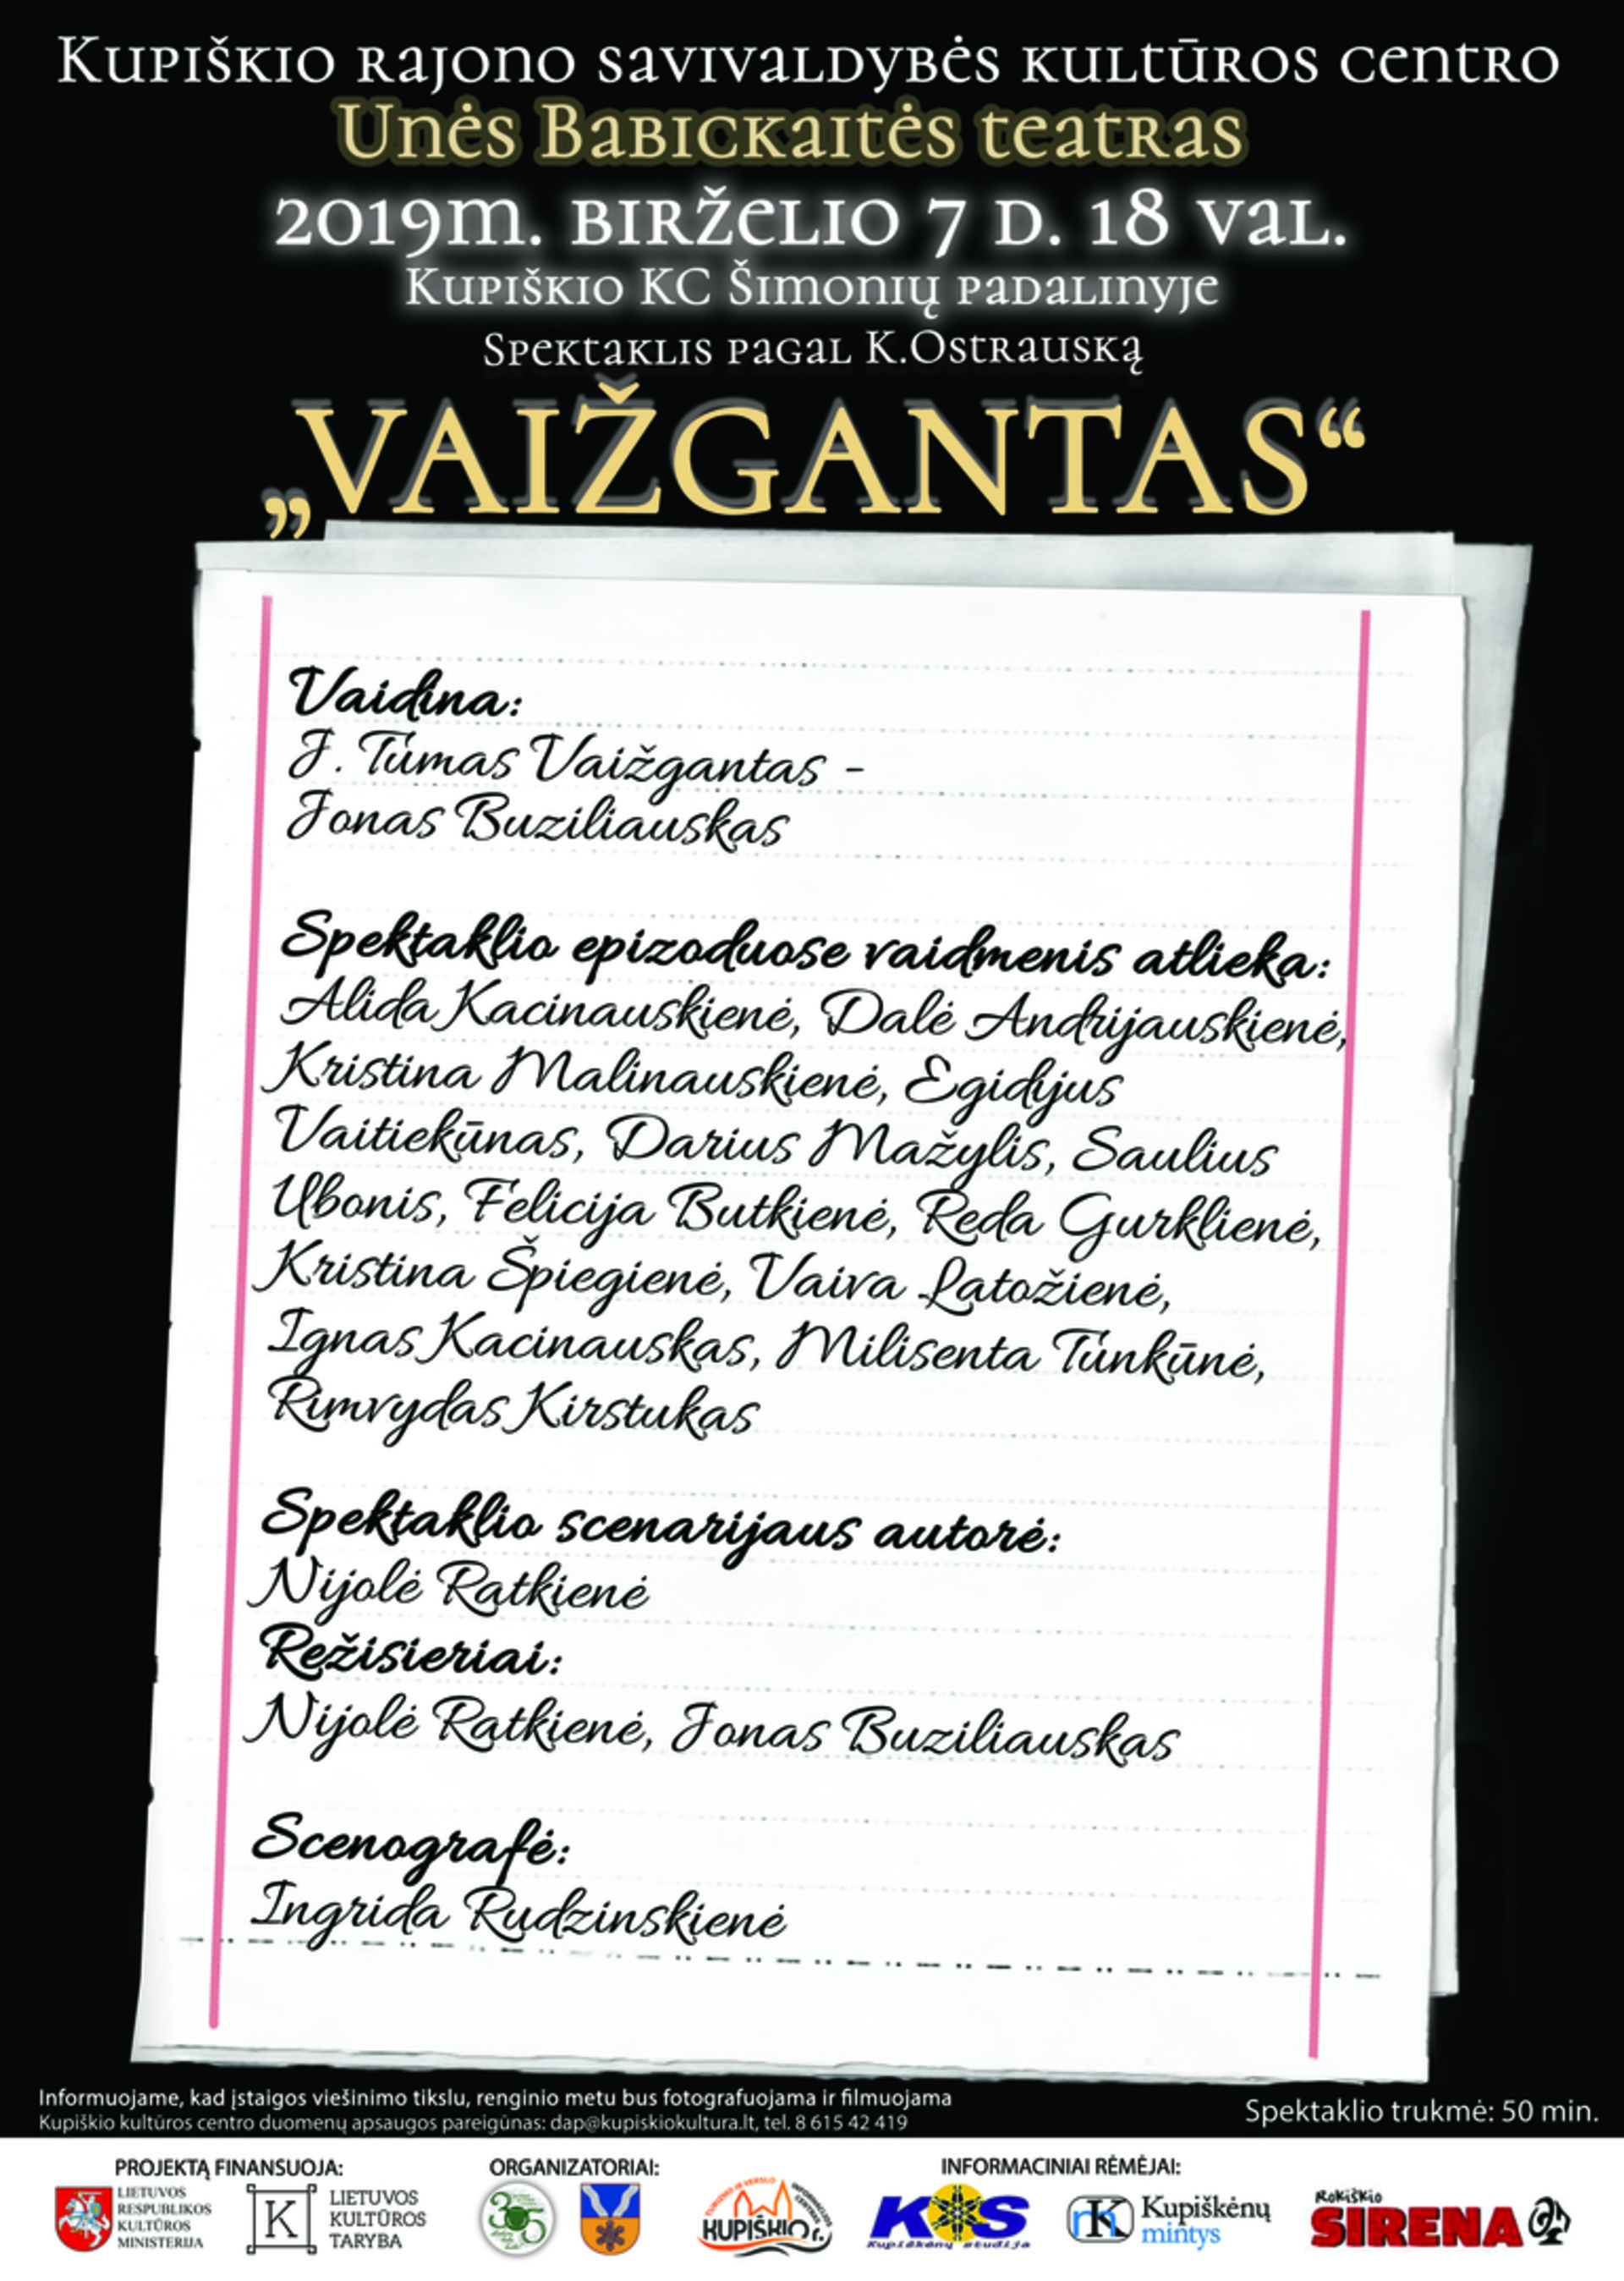 Kupiškio rajono savivaldybės kultūros centro
Unės Babickaitės teatras
2019m. birželio 7 d. 18 val.
Kupiškio KC Šimonių padalinyje
Spektaklis pagal K.Ostrauską
„VAIŽGANTAS“
Vaidina:
J. Tumas Vaižgantas -
Jonas Buziliauskas
Spektaklio epizoduose vaidmenis atlieka:
Alida Kacinauskienė, Dalė Andrijauskienė,
Kristina Malinauskienė, Egidijus
Vaitiekūnas, Darius Mažylis, Saulius
Ubonis, Felicija Butkienė, Reda Gurklienė,
Kristina Špiegienė, Vaiva Latožienė,
Ignas Kacinauskas, Milisenta Tunkūnė,
Rimvydas Kirstukas
Spektaklio scenarijaus autorė:
Nijolė Ratkienė
Režisieriai:
Nijolė Ratkienė, Jonas Buziliauskas
Scenografė:
Ingrida Rudzinskienė
Informuojame, kad įstaigos viešinimo tikslu, renginio metu bus fotografuojama ir filmuojama
Kupiškio kultūros centro duomenų apsaugos pareigūnas: dap@kupiskiokultura.lt, tel. 8 615 42 419
Spektaklio trukmė: 50 min.
PROJEKTĄ FINANSUOJA:
LIETUVOS
RESPUBLIKOS
KULTŪROS
MINISTERIJA
K
LIETUVOS
KULTŪROS
TARYBA
ORGANIZATORIAI:
365
TURIZMO IR VERSLO INFORMACIJOS CENTRAS
KUPIŠKIO r.
INFORMACINIAI RĖMĖJAI:
KS
Kupiškėnų studija
mK
Kupiškėnų
mintys
Rokiškio
SIRENA